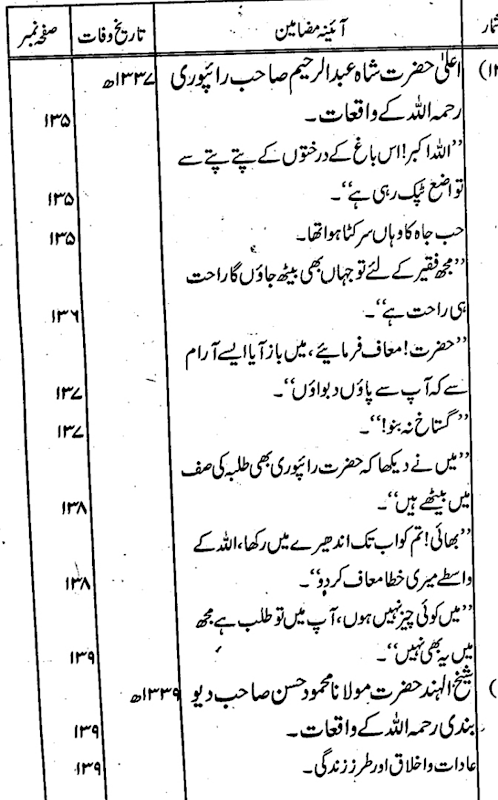 شمار آئینہ مضامین تاریخ وفات صفحہ نمبر
اعلیٰ حضرت شاہ عبدالرحیم صاحب رائپوری ۱۳۳۷ھ
رحمہ اللہ کے واقعات۔ ۱۳۵
’’اللہ اکبر! اس باغ کے درختوں کے پتے پتے سے
تواضع ٹپک رہی ہے‘‘۔ ۱۳۵
حب جاہ کا وہاں سر کٹا ہوا تھا۔ ۱۳۵
’’مجھ فقیر کے لئے تو جہاں بھی بیٹھ جاؤں گا راحت
ہی راحت ہے‘‘۔ ۱۳۶
’’حضرت! معاف فرمایئے، میں باز آیا ایسے آرام
سے کہ آپ سے پاؤں دبواؤں‘‘۔ ۱۳۷
’’گستاخ نہ بنو!‘‘۔ ۱۳۷
’’میں نے دیکھا کہ حضرت رائپوری بھی طلبہ کی صف
میں بیٹھے ہیں‘‘۔ ۱۳۸
’’بھائی! تم کو اب تک اندھیرے میں رکھا، اللہ کے
واسطے میری خطا معاف کر دو‘‘۔ ۱۳۸
’’میں کوئی چیز نہیں ہوں، آپ میں تو طلب ہے مجھ
میں یہ بھی نہیں‘‘۔ ۱۳۹
شیخ الہند حضرت مولانا محمود حسن صاحب دیو ۱۳۳۹ھ
بندی رحمہ اللہ کے واقعات۔ ۱۳۹
عادات و اخلاق اور طرز زندگی۔ ۱۳۹